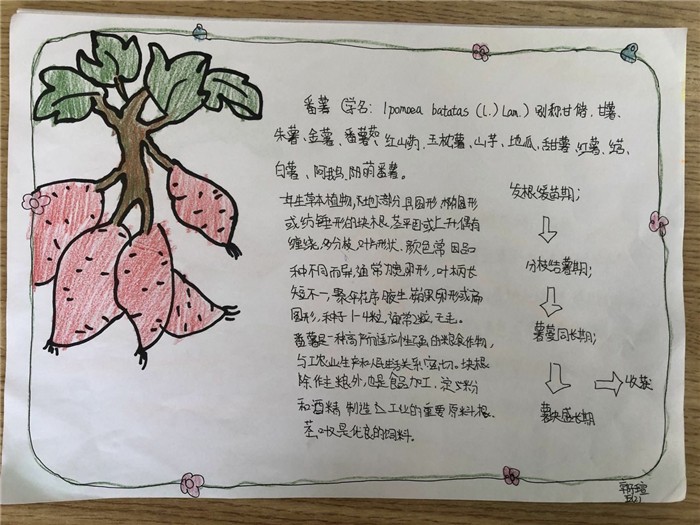 番薯（学名: Ipomoea batatas (L.) Lam.）别称甘储、甘薯、
朱薯、金薯、番薯茹、红山药、玉枕薯、山芋、地瓜、甜薯、红薯、
白薯、阿鹅、萌番薯。
一年生草本植物,地下部分具圆形、椭圆形
或纺锤形的块根,茎平卧或上升,偶有
缠绕,多分枝,叶片形状、颜色常因品
种不同而异,通常为宽卵形,叶柄长
短不一,聚伞花序腋生,蒴果卵形或扁
圆形,种子1-4粒,通常2粒,无毛。
番薯是一种高产而适应性强的粮食作物,
与工农业生产和人民生活关系密切。块根
除作主粮外,也是食品加工、淀粉
和酒精制造工业的重要原料,根、
茎、叶又是优良的饲料。
发根缓苗期;
分枝结薯期;
薯蔓同长期;
薯块盛长期
收获